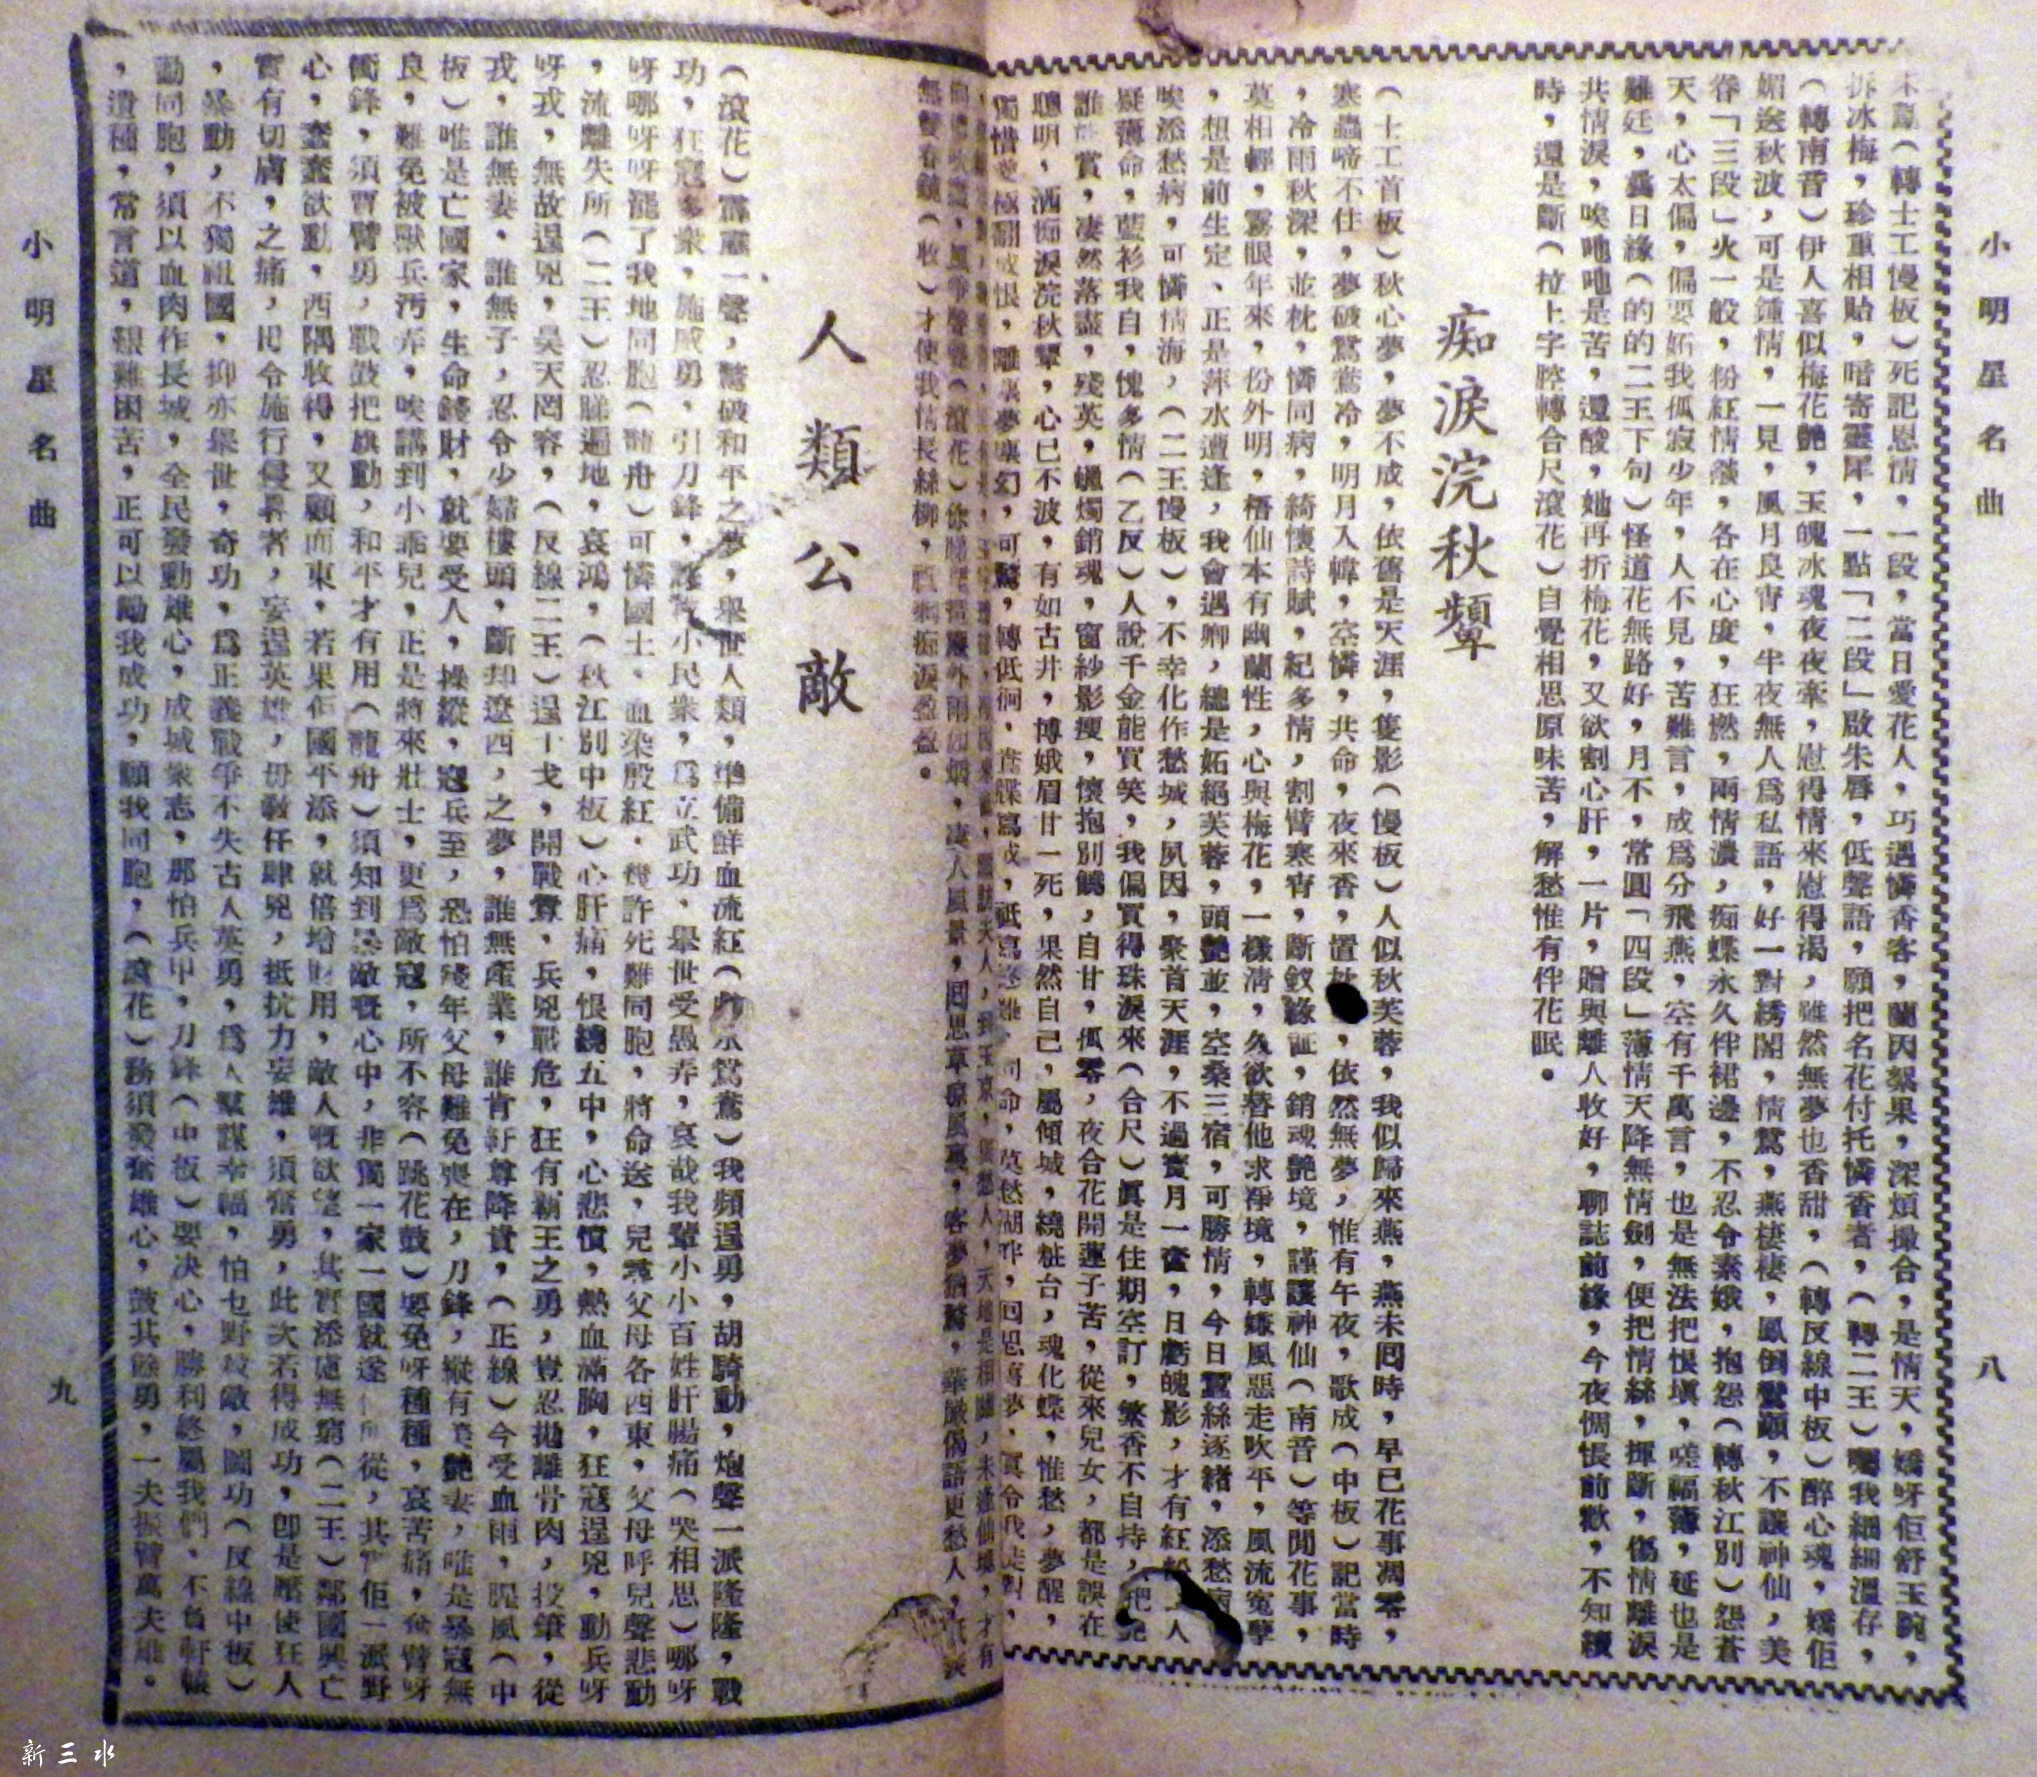 小明星名曲
八
(轉士工慢板)死記恩情,一段,當日愛花人,巧遇憐香客,蘭因絮果,深煩撮合,是情天,嬌呀佢舒玉腕,
拆冰梅,珍重相貽,暗寄靈犀,一點「二段」啟朱唇,低聲語,願把名花付托憐香者,(轉二王)囑我細細溫存,
(轉南音)伊人喜似梅花艷,玉魄冰魂夜夜牽,慰得情來慰得渴,雖然無夢也香甜,(轉反線中板)醉心魂,嬌佢
媚送秋波,可是鍾情,一見,風月良宵,半夜無人為私語,好一對綉閣,情鴛,燕棲棲,鳳倒鸞顛,不讓神仙,美
眷「三段」火一般,粉紅情箋,各在心度,狂燃,兩情濃,痴蝶永久伴裙邊,不忍令素娥,抱怨(轉秋江別)怨蒼
天,心太偏,偏要妬我孤寂少年,人不見,苦難言,成為分飛燕,空有千萬言,也是無法把恨塡,嗟福薄,延也是
難廷,曩日緣(的的二王下句)怪道花無路好,月不,常圓「四段」薄情天降無情劍,便把情絲,揮斷,傷情離淚
共情淚,唉吔吔是苦,還酸,她再折梅花,又欲割心肝,一片,贈與離人收好,聊誌前緣,今夜惆悵前歡,不知續
時,還是斷(拉上字腔轉合尺滾花)自覺相思原味苦,解愁惟有伴花眠。
痴淚浣秋顰
(士工首板)秋心夢,夢不成,依舊是天涯,隻影(慢板)人似秋芙蓉,我似歸來燕,燕未囘時,早已花事凋零,
寒蟲啼不住,夢破鴛鴦冷,明月入幃,空憐,共命,夜來香,置,依然無夢,惟有午夜,歌成(中板)記當時
,冷雨秋深,並枕,憐同病,綺懷詩賦,紀多情,割臂寒宵,斷釵緣証,銷魂艷境,謹讓神仙(南音)等閒花事,
莫相輕,霧眼年來,份外明,梧仙本有幽蘭性,心與梅花,一樣清,久欲替他求淨境,轉嫌風惡走吹平,風流寃孽
,想是前生定、正是萍水遭逢,我會遇卿,總是妬絕芙蓉,頭艷並,空桑三宿,可勝情,今日蠶絲逐緒,添愁病
唉添愁病,可憐情海,(二王慢板),不幸化作愁城,夙因,聚首天涯,不過寶月一奩,日虧魄影,才有紅人
疑薄命,藍衫我自,愧多情(乙反)人說千金能買笑,我偏買得珠淚來(合尺)眞是住期空訂,繁香不自持,把
誰賞,凄然落盡,殘英,蠟燭銷魂,窗紗影瘦,懷抱別饒,自甘,孤零,夜合花開蓮子苦,從來兒女,都是誤在
聰明,洒痴淚浣秋顰,心已不波,有如古井,博娥眉甘一死,果然自己,屬傾城,繞粧台,魂化蝶,惟愁,夢醒,
極翻成恨,離夢幻,可驚,轉低徊,命,莫愁湖畔,回思舊夢,眞令我
無聲春鏡(收)才使我情長絲柳,痴淚盈盈。
人類公敵
(滾花)霹靂一聲,驚破和平之夢,舉世人類,準備鮮血流紅(鴛鴦)我頻逞勇,胡騎動,炮聲一派隆隆,戰
功,狂寇多衆,施威勇,引刀鋒,小民衆,為立武功,舉世受愚弄,哀哉我輩小小百姓肝腸痛(哭相思)哪呀
呀哪呀呀罷了我地同胞(龍舟)可憐國土,血染殷紅,幾許死難同胞,將命送,兒尋父母各西東,父母呼兒聲悲動
,流離失所(二王)忍睇遍地,哀鴻,(秋江別中板)心肝痛,恨繞五中,心悲憤,熱血滿胸,狂寇逞兇,動兵呀
呀戎,無故逞兇,昊天罔容,(反線二王)逞干戈,開戰釁,兵兇戰危,狂有覇王之勇,豈忍拋離骨肉,投筆,從
戎,誰無妻,誰無子,忍令少婦樓頭,斷却遼西,之夢,誰無產業,誰肯紆尊降貴,(正線)今受血雨,腥風(中
板)唯是亡國家,生命錢財,就要受人,操縱,寇兵至,恐怕殘年父母難免喪在,刀鋒,縱有美艷妻,唯是暴寇無
良,難免被獸兵汚弄,唉講到小乖兒,正是將來壯士,更為敵寇,所不容(跳花鼓)要免呀種種,哀苦痛,奮臂呀
衝鋒,須賈臂勇,戰鼓把旗動,和平才有用(龍舟)須知到暴敵嘅心中,非獨一家一國就遂從,其實佢一派野
心,蠢蠢欲動,西隅牧得,又顧而東,若果佢國平添,就倍增財用,敵人嘅欲望,其實添應無窮(二王)鄰國興亡
實有切膚,之痛,用令施行侵畧者,妄逞英雄,毋敎任肆兇,抵抗力妄雄,須奮勇,此次若得成功,卽是壓使狂人
,暴動,不獨祖國,抑亦舉世,奇功,爲正義戰爭不失古人英勇,爲人羣謀幸福,怕乜野敵,圖功(反線中板)
勸同胞,須以血肉作長城,全民發動雄心,成城衆志,那怕兵甲,刀鋒(中板)要决心,勝利終屬我們,不負軒轅
,遺種,常言道,艱難困苦,正可以勵我成功,願我同胞,(滾花)務須發奮雄心,鼓其餘勇,一夫振臂萬夫雄。
小明星名曲
九
新三水